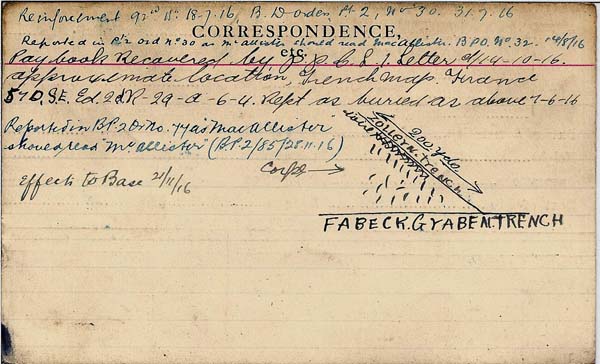 Reinforcement 92nd Bn 18-7-16, B. D orders Pt 2, No 30. 31.7.16
CORRESPONDENCE,
etc.
Reported in Pt 2 ord No 30 as McAllister should read MacAllister. B P O. No. 32. 14/8/16
Paybook Recovered by Letter d/14-10-16.
approximate location, Trench map. France
57D. S.E. Ed. 2d R-29-a-6-4. Rept as buried as above 7-6-16
Reported in B.P. 2 D. No. 77 as "MacAllister"
should read "McAllister" (P.P. 2/85/28.11.16)
Effects to Base 21/11/16
Corps
200 yds.
Zollern. trench
FABECK. GRABEN. TRENCH